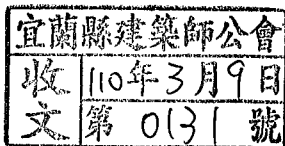 宜蘭縣建築師公會
收文
110年3月9日
第 0131 號